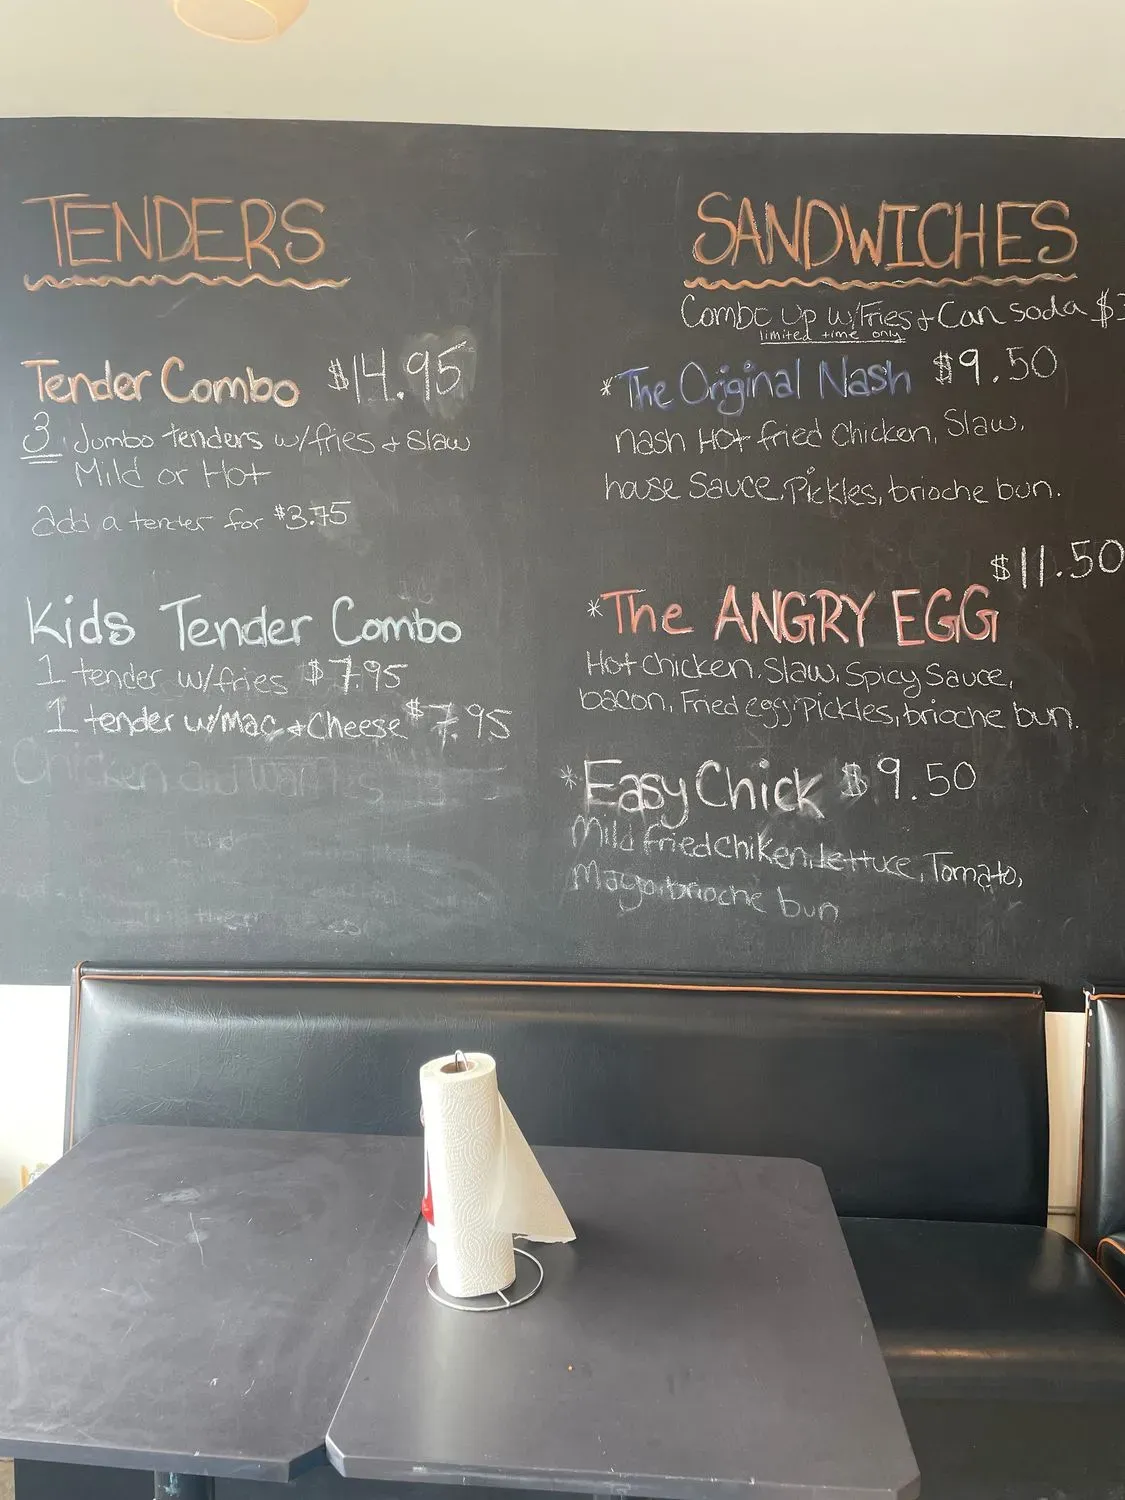 TENDERS
Tender Combo $14.95
3 Jumbo tenders w/fries + Slaw
Mild or Hot
add a tender for $3.75
Kids Tender Combo
1 tender w/fries $7.95
1 tender w/Mac + Cheese $7.95
Chicken and
SANDWICHES
Combo up w/Fries + Can soda $3
limited time only
*The Original Nash $9.50
nash Hot fried Chicken, Slaw,
house Sauce, Pickles, brioche bun.
$11.50
*The ANGRY EGG
Hot chicken, Slaw, Spicy Sauce,
bacon, Fried egg, Pickles, brioche bun.
*Easy Chick $9.50
Mild fried chiken, lettuce, Tomato,
Mayo, brioche bun